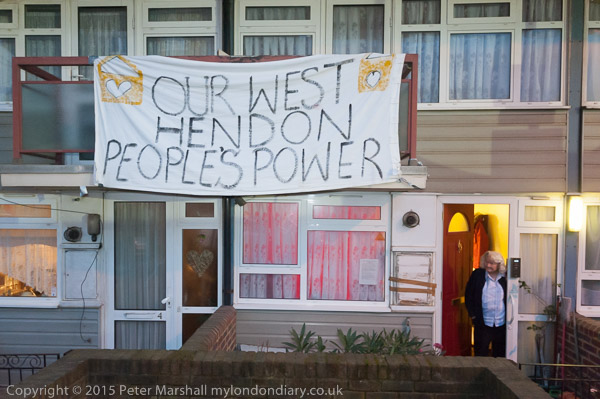 OUR WEST
HENDON
PEOPLE'S POWER
4
Copyright © 2015 Peter Marshall mylondondiary.co.uk